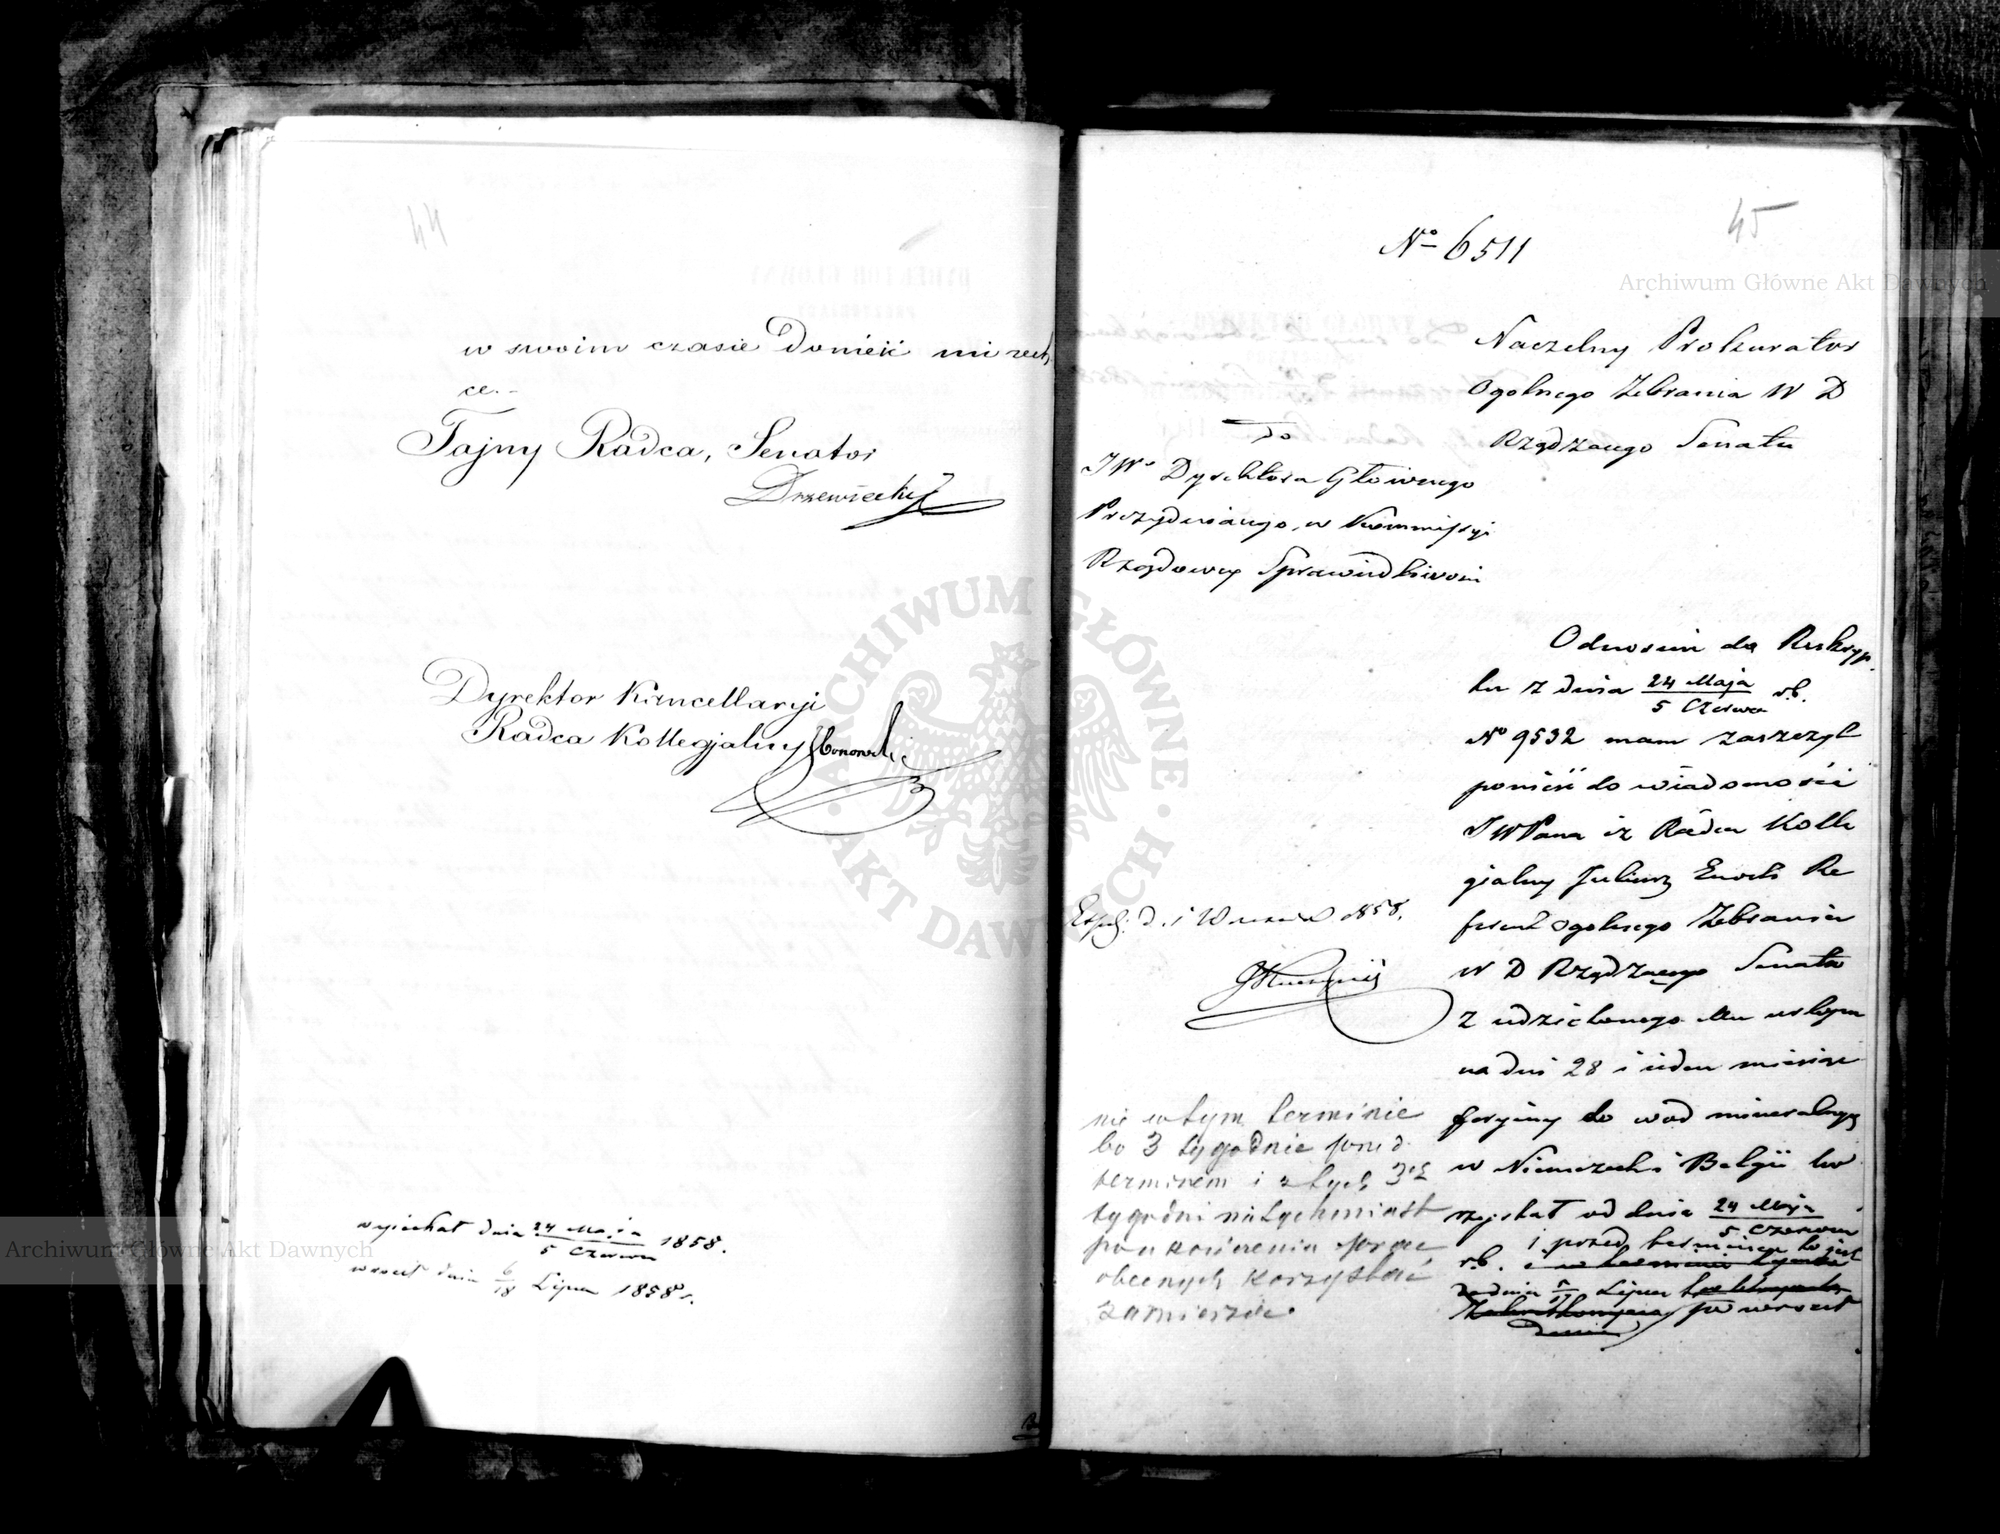 44
w swoim czasie donieść mi zech
ce.-
Tajny Radca, Senator
Drzewiecki
Dyrektor Kancellaryi
Radca Kollegjalny
wyjechał dnia 24 Maja / 5 Czerwca 1858.
wrócił dnia 6/18 Lipca 1858 r.
45
No 6511
Naczelny Prokurator
Ogolnego Zebrania W D
Rządzącego Senatu
Do
JWo Dyrektora Głównego
Prezydującego w Kommissyi
Rządowey Sprawiedliwości
Odnośnie do Reskryp
tu z dnia 24 Maja / 5 Czerwca r.b.
No 9532 mam zaszczyt
ponieść do wiadomości
JWPana iż Radca Kolle
gialny Juliusz Enoch Re
ferent Ogolnego Zebrania
W D Rządzącego Senatu
z udzielonego Mu urlopu
na dni 28 i jeden miesiąc
feryiny do wod mineralnych
w Niemczech i Belgii ko
rzystał od dnia 24 Maja / 5 Czerwca
i przed terminem to jest
r.b.
dnia 5/17 Lipca
powrócił
Expd: d. 1 1858.
nie w tym terminie
bo 3 tygodnie przed
terminem i z tych 3ch
tygodni natychmiast
po ukończeniu prac
obecnych korzystać
zamierza.
Archiwum Główne Akt Dawnych
Archiwum Główne Akt Dawnych
ARCHIWUM GŁÓWNE AKT DAWNYCH